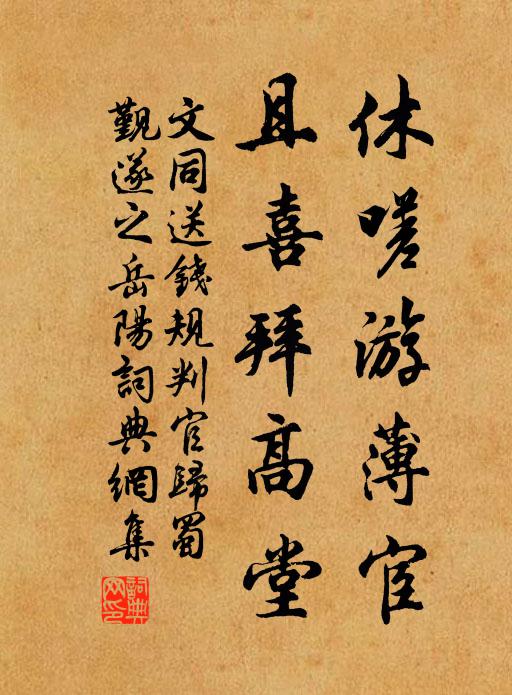 休嗟游薄宦
且喜拜高堂
文同送錢規判官歸蜀
覲遂之岳陽詞典網集
詞典網印